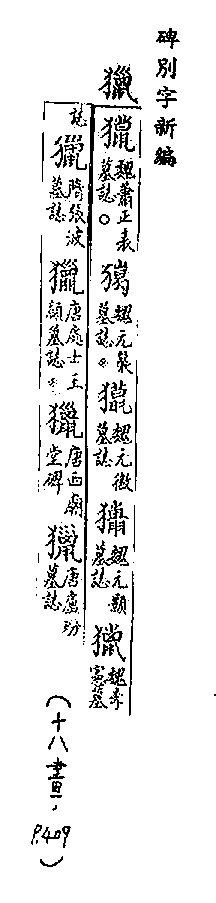 碑別字新編
獵
獵魏蕭正表墓誌。獦魏元泉墓誌。獵魏元徽墓誌 魏元顥墓誌 獵魏李憲墓
誌 獵隋張波墓誌 獵唐處士王顏墓誌。獵唐西嶽堂碑 獵唐盧玢墓誌
(十八畫,P.409)